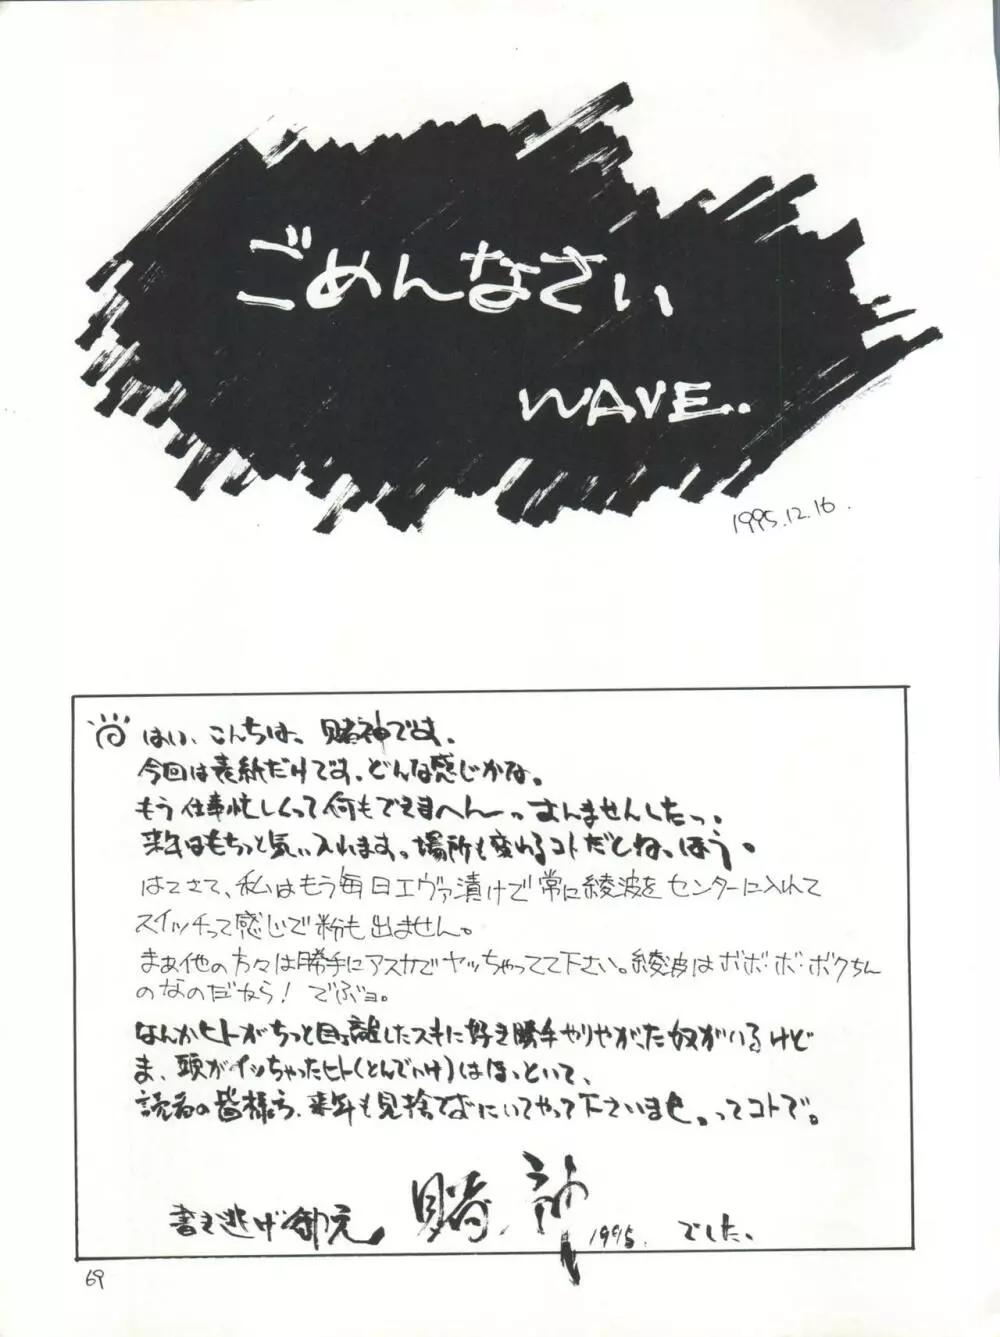 ごめんなさい
WAVE.
1995.12.16.
はい、こんちは、賭神です。
今回は表紙だけです。どんな感じかな。
もう仕事忙しくって何もできまへんーっすんませんしたっ。
来年はもちっと気い入れます。場所も変わるコトだしね。ほう。
はてさて、私はもう毎日エヴァ漬けで常に綾波をセンターに入れて
スイッチって感じで粉も出ません。
まぁ他の方々は勝手にアスカでヤッちゃってて下さい。綾波はボボ・ボ・ボクちん
のなのだから！でぶョ。
なんかヒトがちっと目ェ離したスキに好き勝手やりやがった奴がいるけど
ま、頭がイッちゃったヒト(とんでいけ)はほっといて、
読者の皆様方、来年も見捨てずにいてやって下さいませ。ってコトで。
書き逃げ御免 賭神 1995. でした。
69